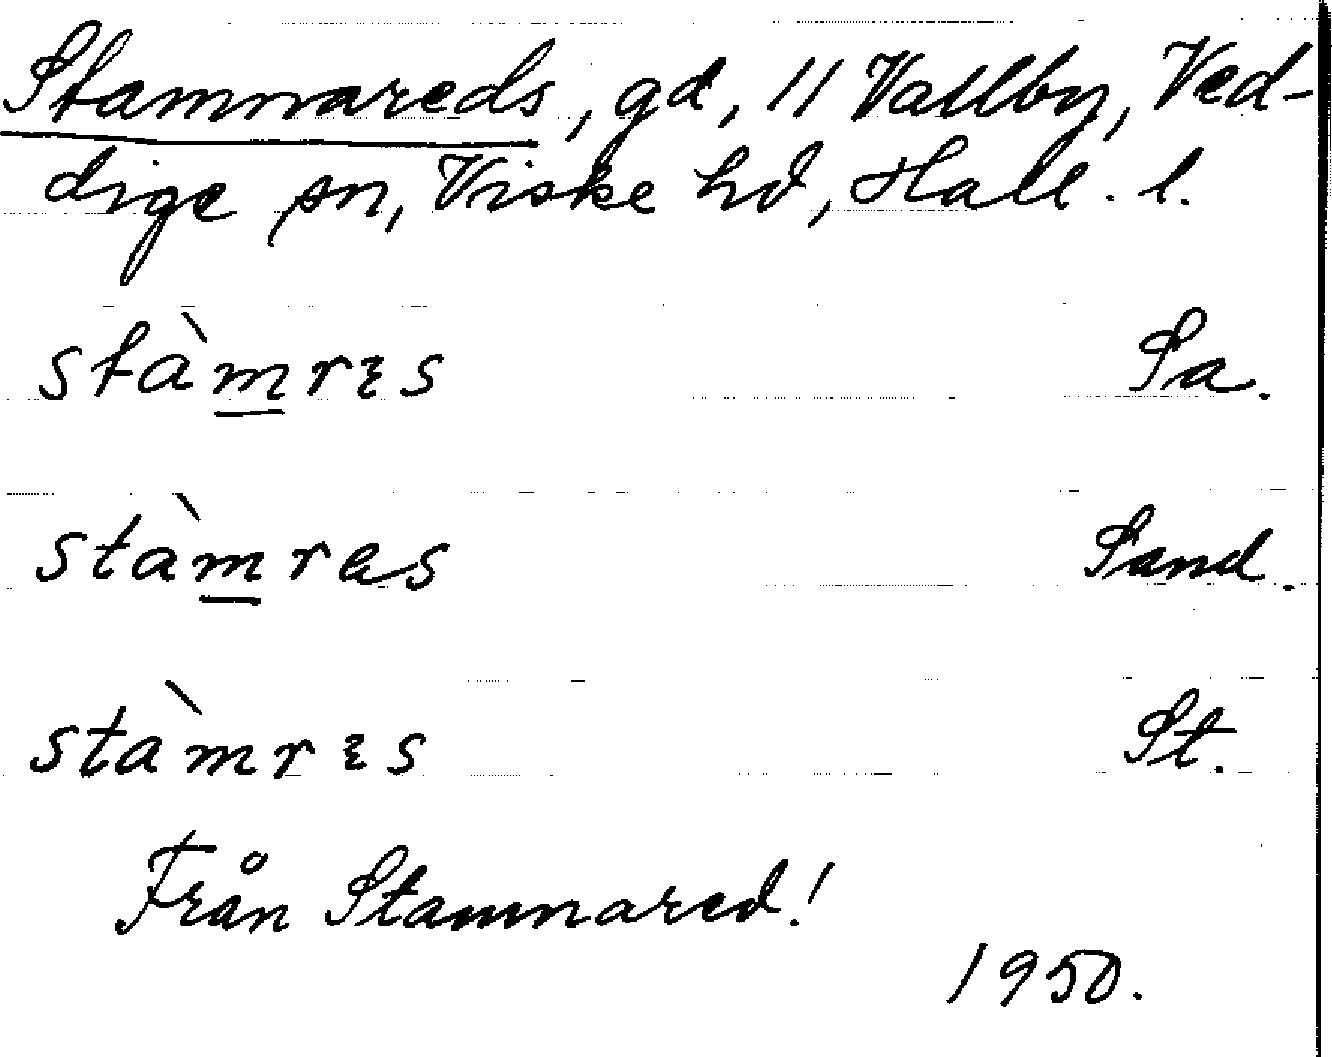 Stamnareds, gd, 11 Vallby, Ved-
dige sn, Viske hd, Hall. l.
stàm̲rɛs Sa.
stàm̲ræs Sand.
stàmrɛs St.
Från Stamnared!
1950.